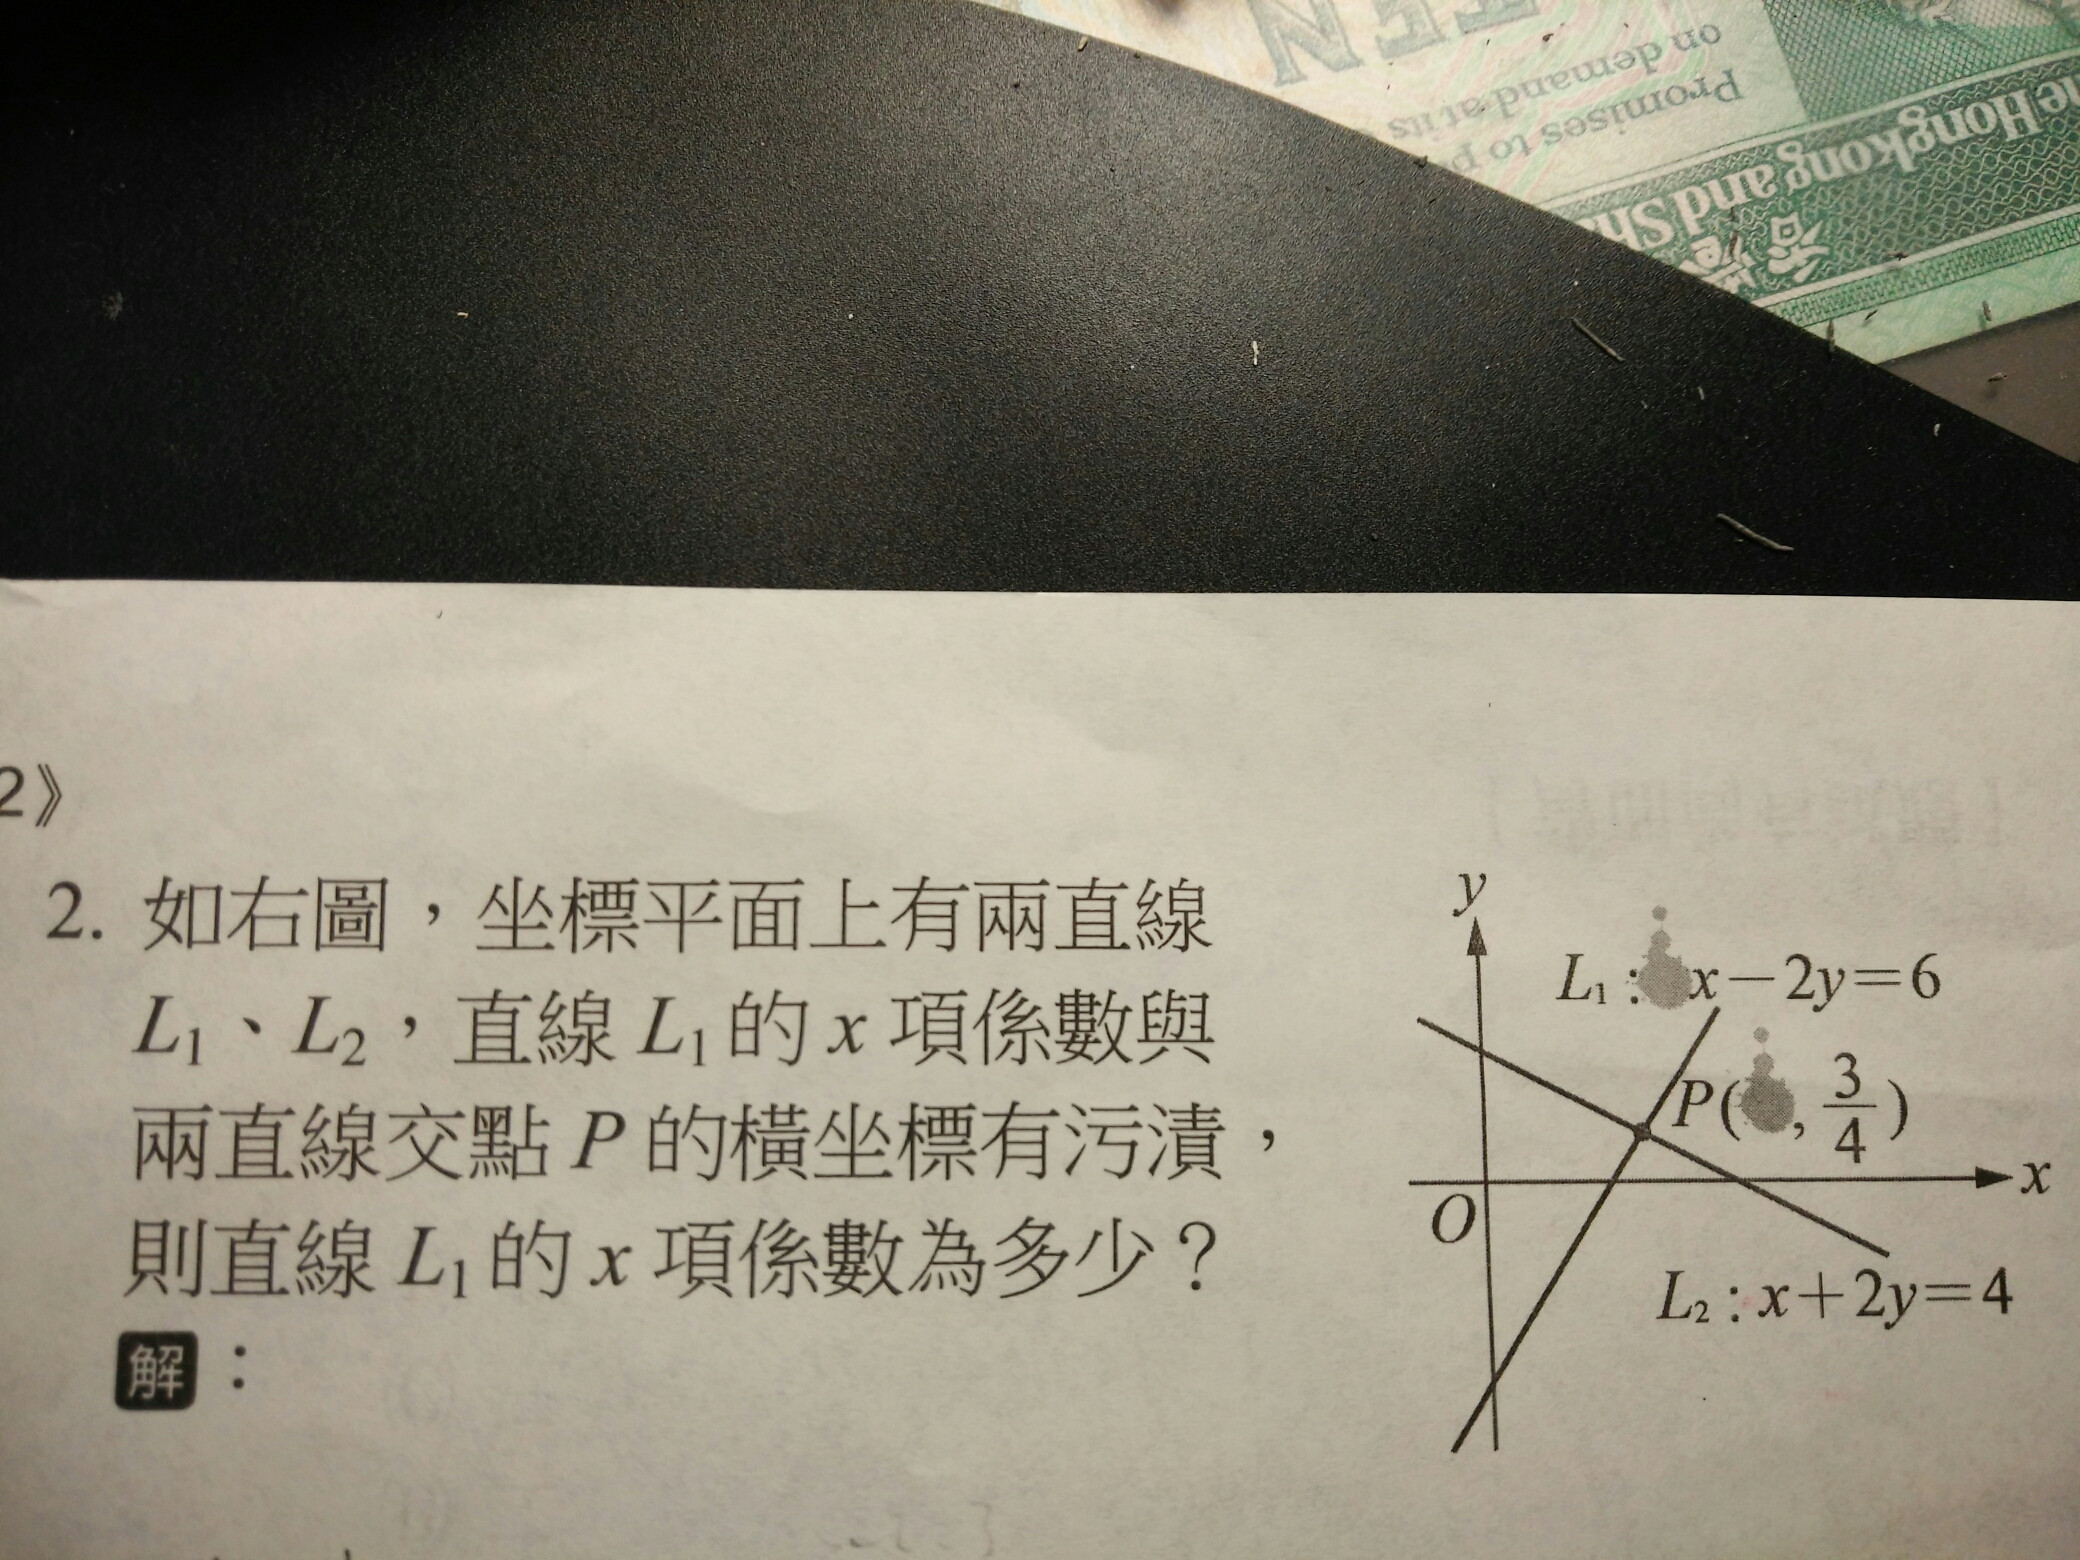 TEN
Promises to p
on demand at its
he Hongkong and Sh
2》
2. 如右圖，坐標平面上有兩直線
L₁、L₂，直線 L₁ 的 x 項係數與
兩直線交點 P 的橫坐標有污漬，
則直線 L₁ 的 x 項係數為多少？
解：
y
L₁: x－2y＝6
P( , 3/4)
x
O
L₂: x＋2y＝4